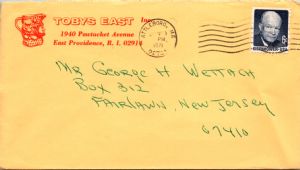 TOBYS EAST Inc.
1940 Pawtucket Avenue
East Providence, R. I. 02914
ATTLEBORO, MA
PM
1971
EISENHOWER·USA
Mr George H Wettach
Box 312
Fairlawn, New Jersey
07410